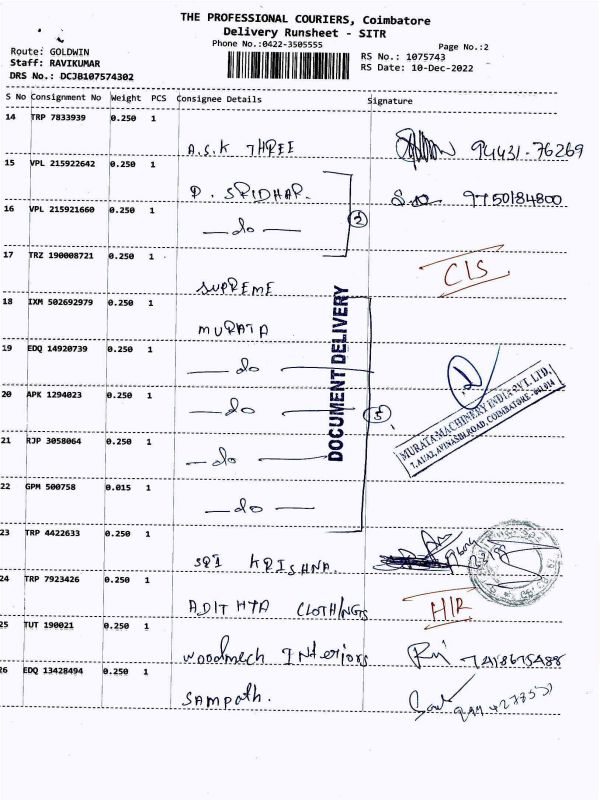 THE PROFESSIONAL COURIERS, Coimbatore
Delivery Runsheet - SITR
Phone No.:0422-3505555
Page No.:2
Route: GOLDWIN
Staff: RAVIKUMAR
DRS No.: DCJB107574302
RS No.: 1075743
RS Date: 10-Dec-2022
S No Consignment No Weight PCS Consignee Details Signature
14 TRP 7833939 0.250 1
A.S.K THREE 94431-76269
15 VPL 215922642 0.250 1
P. SRIDHAR. 9750184800
16 VPL 215921660 0.250 1
— do — 2
17 TRZ 190008721 0.250 1
SUPREME CLS
18 IXM 502692979 0.250 1
MURATA
DOCUMENT DELIVERY
19 EDQ 14920739 0.250 1
— do —
20 APK 1294023 0.250 1
— do — 5
MURATA MACHINERY INDIA PVT. LTD.
AVINASHI ROAD, COIMBATORE - 641 014
21 RJP 3058064 0.250 1
— do —
22 GPM 500758 0.015 1
— do —
23 TRP 4422633 0.250 1
SRI KRISHNA.
24 TRP 7923426 0.250 1
ADITHYA CLOTHINGS H/R
25 TUT 190021 0.250 1
Woodmech Interiors 7418675488
26 EDQ 13428494 0.250 1
Sampath.